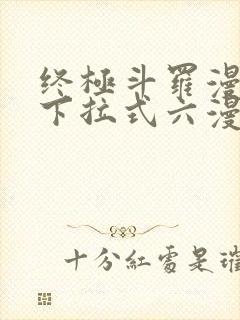 终極斗羅漫
下拉式六漫
十分紅處是璀